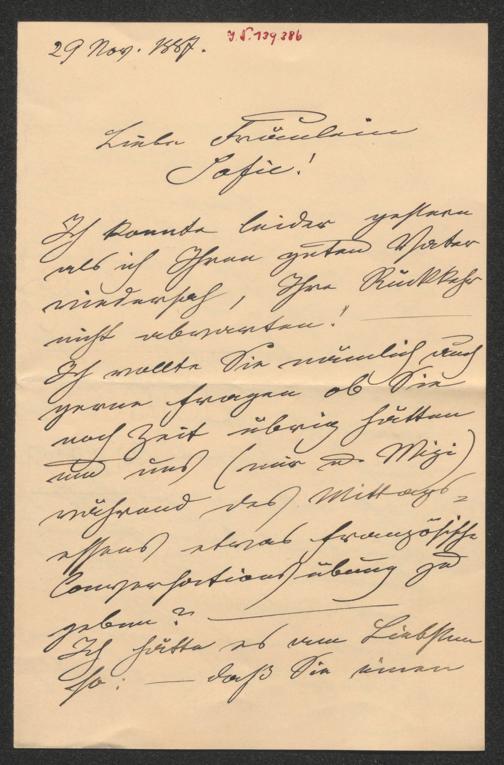 29 Nov. 1887.
J.N. 139386
Liebe Fräulein
Sofie!
Ich konnte leider gestern
als ich Ihren guten Vater
wiedersah, Ihre Rückkehr
nicht abwarten! —
Ich wollte Sie nämlich auch
gerne fragen ob Sie
noch Zeit übrig hätten
und uns (mir u. Mizi)
während des Mittags-
essens etwas französische
Conversationsübung zu
geben? —
Ich hätte es am Liebsten
so: — daß Sie einen